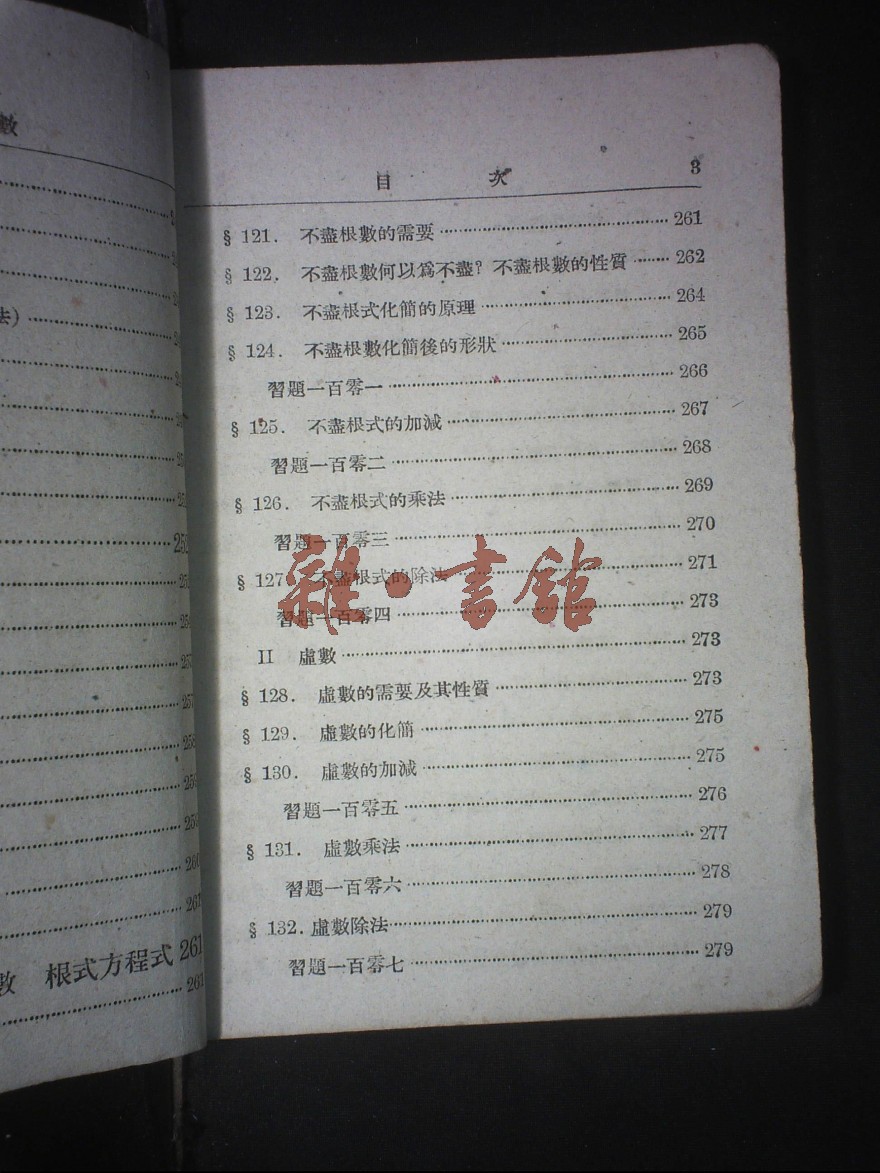 數
法)
252
257
數 根式方程式 261
261
目 次 3
§ 121. 不盡根數的需要 261
§ 122. 不盡根數何以爲不盡？不盡根數的性質 262
§ 123. 不盡根式化簡的原理 264
§ 124. 不盡根數化簡後的形狀 265
習題一百零一 266
§ 125. 不盡根式的加減 267
習題一百零二 268
§ 126. 不盡根式的乘法 269
習題一百零三 270
§ 127. 不盡根式的除法 271
習題一百零四 273
II 虛數 273
§ 128. 虛數的需要及其性質 273
§ 129. 虛數的化簡 275
§ 130. 虛數的加減 275
習題一百零五 276
§ 131. 虛數乘法 277
習題一百零六 278
§ 132. 虛數除法 279
習題一百零七 279
雜·書館